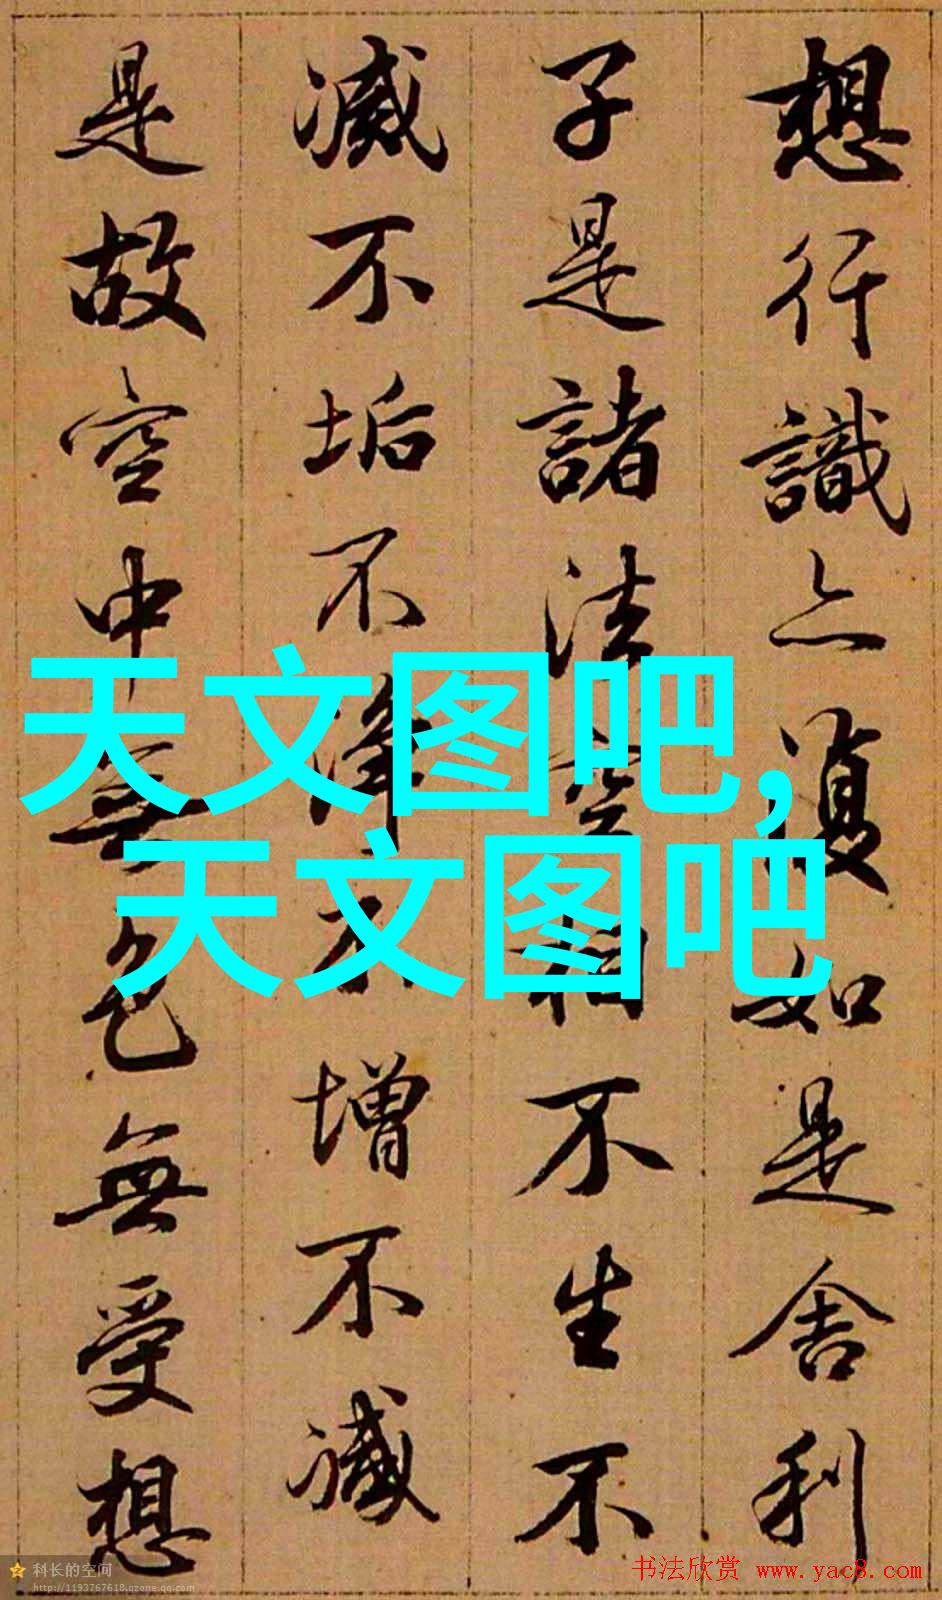 想行識亦復如是舍利
子是諸法空相不生不
滅不垢不淨不增不減
是故空中無色無受想
天文图吧,
天文图吧
科长的空间
http://1193767618.qzone.qq.com
书法欣赏 www.yac8.com